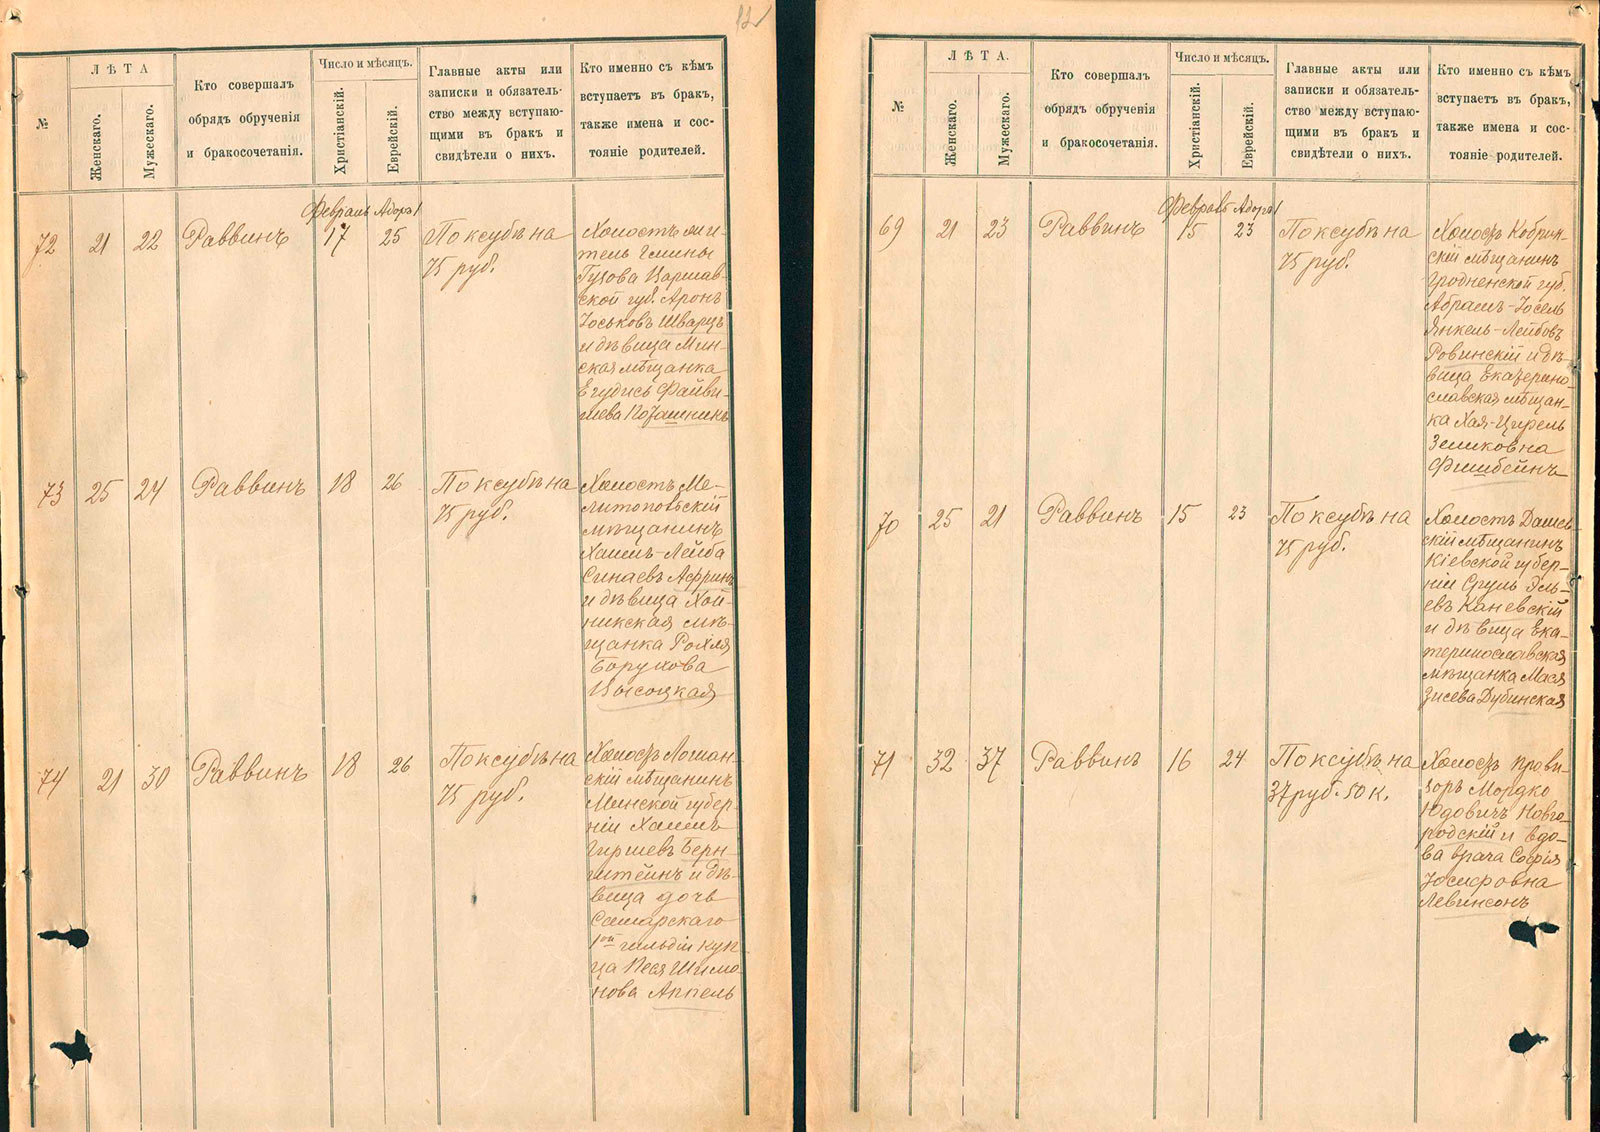 №
ЛѢТА
Женскаго.
Мужескаго.
Кто совершалъ
обрядъ обрученія
и бракосочетанія.
Число и мѣсяцъ.
Христіанскій.
Еврейскій.
Главные акты или
записки и обязатель-
ство между вступаю-
щими въ бракъ и
свидѣтели о нихъ.
Кто именно съ кѣмъ
вступаетъ въ бракъ,
также имена и сос-
тояніе родителей.
Февраль Адоръ 1
72 21 22 Раввинъ 17 25
По ксубѣ на
75 руб.
Холостъ жи-
тель Гмины
Гузова Варшав-
ской губ. Аронъ
Іоськовъ Шварцъ
и дѣвица Мин-
ская мѣщанка
Егудись Файви-
шева
73 25 24 Раввинъ 18 26
По ксубѣ на
75 руб.
Холостъ Ме-
литопольскій
мѣщанинъ
Хаимъ-Лейба
Синаевъ
и дѣвица Хой-
никская мѣ-
щанка Рохля
Борухова
Высоцкая
74 21 30 Раввинъ 18 26
По ксубѣ на
75 руб.
Холостъ
скій мѣщанинъ
Минской губер-
ніи Хаимъ
Гиршевъ Берн-
штейнъ и дѣ-
вица дочь
Самарскаго
1ой гильдіи куп-
ца Песя Шимо-
нова Аппель
№
ЛѢТА.
Женскаго.
Мужескаго.
Кто совершалъ
обрядъ обрученія
и бракосочетанія.
Число и мѣсяцъ.
Христіанскій.
Еврейскій.
Главные акты или
записки и обязатель-
ство между вступаю-
щими въ бракъ и
свидѣтели о нихъ.
Кто именно съ кѣмъ
вступаетъ въ бракъ,
также имена и сос-
тояніе родителей.
Февраль Адоръ 1
69 21 23 Раввинъ 15 23
По ксубѣ на
75 руб.
Холостъ Кобрин-
скій мѣщанинъ
Гродненской губ.
Абрамъ-Іосель
Янкель-Лейбовъ
Ровинскій и дѣ-
вица Екатерино-
славская мѣщан-
ка Хая-Цирель
Зеликовна
Фишбейнъ
70 25 21 Раввинъ 15 23
По ксубѣ на
75 руб.
Холостъ Дашев-
скій мѣщанинъ
Кіевской губер-
ніи Сруль Эль-
евъ Каневскій
и дѣвица Ека-
теринославская
мѣщанка Мася
Зисева Дубинская
71 32 37 Раввинъ 16 24
По ксубѣ на
37 руб. 50 к.
Холостъ прови-
зоръ Мордко
Юдовичъ Новго-
родскій и вдо-
ва врача Софія
Іосифовна
Левинсонъ